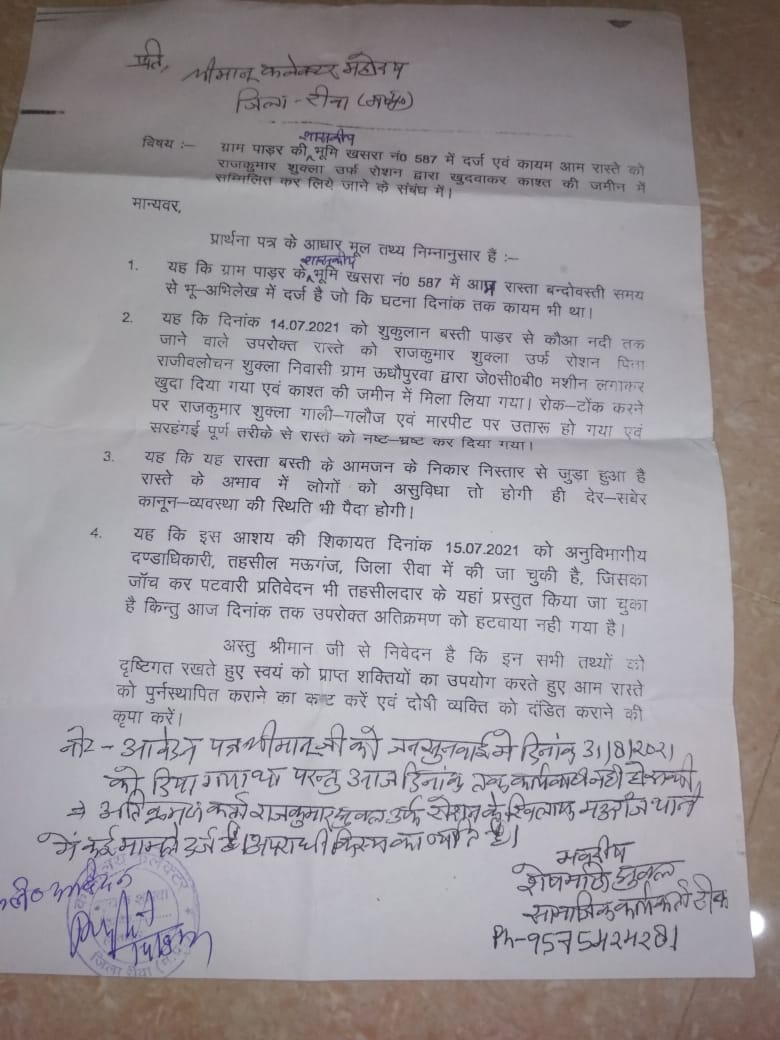 प्रति,
श्रीमान् कलेक्टर महोदय
जिला - रीवा (म०प्र०)
विषय :- ग्राम पाड़र की शासकीय भूमि खसरा न0 587 में दर्ज एवं कायम आम रास्ते को
राजकुमार शुक्ला उर्फ रोशन द्वारा खुदवाकर काश्त की जमीन में
सम्मिलित कर लिये जाने के संबंध में।
मान्यवर,
प्रार्थना पत्र के आधार मूल तथ्य निम्नानुसार है :-
1. यह कि ग्राम पाड़र के शासकीय भूमि खसरा नं0 587 में आम रास्ता बन्दोवस्ती समय
से भू-अभिलेख में दर्ज है जो कि घटना दिनांक तक कायम भी था।
2. यह कि दिनांक 14.07.2021 को शुकुलान बस्ती पाड़र से कौआ नदी तक
जाने वाले उपरोक्त रास्ते को राजकुमार शुक्ला उर्फ रोशन पिता
राजीवलोचन शुक्ला निवासी ग्राम ऊधौपुरवा द्वारा जे0सी0बी0 मशीन लगाकर
खुदा दिया गया एवं काश्त की जमीन में मिला लिया गया। रोक-टोंक करने
पर राजकुमार शुक्ला गाली-गलौज एवं मारपीट पर उतारू हो गया एवं
सरहंगई पूर्ण तरीके से रास्ते को नष्ट-भ्रष्ट कर दिया गया।
3. यह कि यह रास्ता बस्ती के आमजन के निकार निस्तार से जुड़ा हुआ है
रास्ते के अभाव में लोगों को असुविधा तो होगी ही देर-सबेर
कानून-व्यवस्था की स्थिति भी पैदा होगी।
4. यह कि इस आशय की शिकायत दिनांक 15.07.2021 को अनुविभागीय
दण्डाधिकारी, तहसील मऊगंज, जिला रीवा में की जा चुकी है, जिसका
जॉच कर पटवारी प्रतिवेदन भी तहसीलदार के यहां प्रस्तुत किया जा चुका
है किन्तु आज दिनांक तक उपरोक्त अतिक्रमण को हटवाया नही गया है।
अस्तु श्रीमान जी से निवेदन है कि इन सभी तथ्यों को
दृष्टिगत रखते हुए स्वयं को प्राप्त शक्तियों का उपयोग करते हुए आम रास्ते
को पुर्नस्थापित कराने का कष्ट करें एवं दोषी व्यक्ति को दंडित कराने की
कृपा करें।
नोट - आवेदन पत्र श्रीमान जी को जनसुनवाई मे दिनांक 31/8/2021
को दिया गया था परन्तु आज दिनांक तक कार्यवाही नही हो सकी
⇒ अतिक्रमण कर्ता राजकुमार शुक्ल उर्फ रोशन के खिलाफ मऊगंज थाने
में कई मामले दर्ज है। अपराधी किस्म का व्यक्ति है।
भवदीय
शेषमणि शुक्ल
सामाजिक कार्यकर्ता
Ph-9575424281
कलेक्टर
जिला रीवा